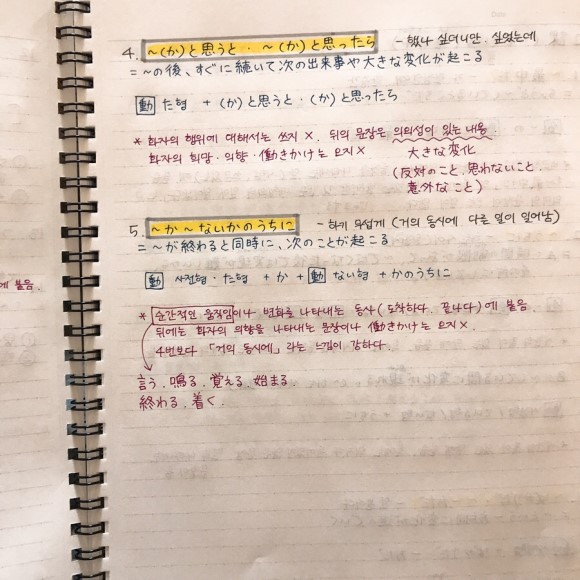 4. ~(か)と思うと・~(か)と思ったら - 했나 싶더니만. 싶었는데
= ~の後、すぐに続いて次の出来事や大きな変化が起こる
動 た형 + (か)と思うと・(か)と思ったら
* 화자의 행위에 대해서는 쓰지 X. 뒤의 문장은 의외성이 있는 내용.
화자의 희망·의향·働きかけ는 오지 X
大きな変化
(反対のこと、思わないこと、
意外なこと)
5. ~か~ないかのうちに - 하기 무섭게 (거의 동시에 다른 일이 일어남)
= ~が終わると同時に、次のことが起こる
動 사전형·た형 + か + 動 ない형 + かのうちに
* 순간적인 움직임이나 변화를 나타내는 동사(도착하다. 끝나다)에 붙음.
뒤에는 화자의 의향을 나타내는 문장이나 働きかけ는 오지 X.
4번보다 「거의 동시에」라는 느낌이 강하다.
言う、鳴る、覚える、始まる、
終わる、着く、
에 붙음.